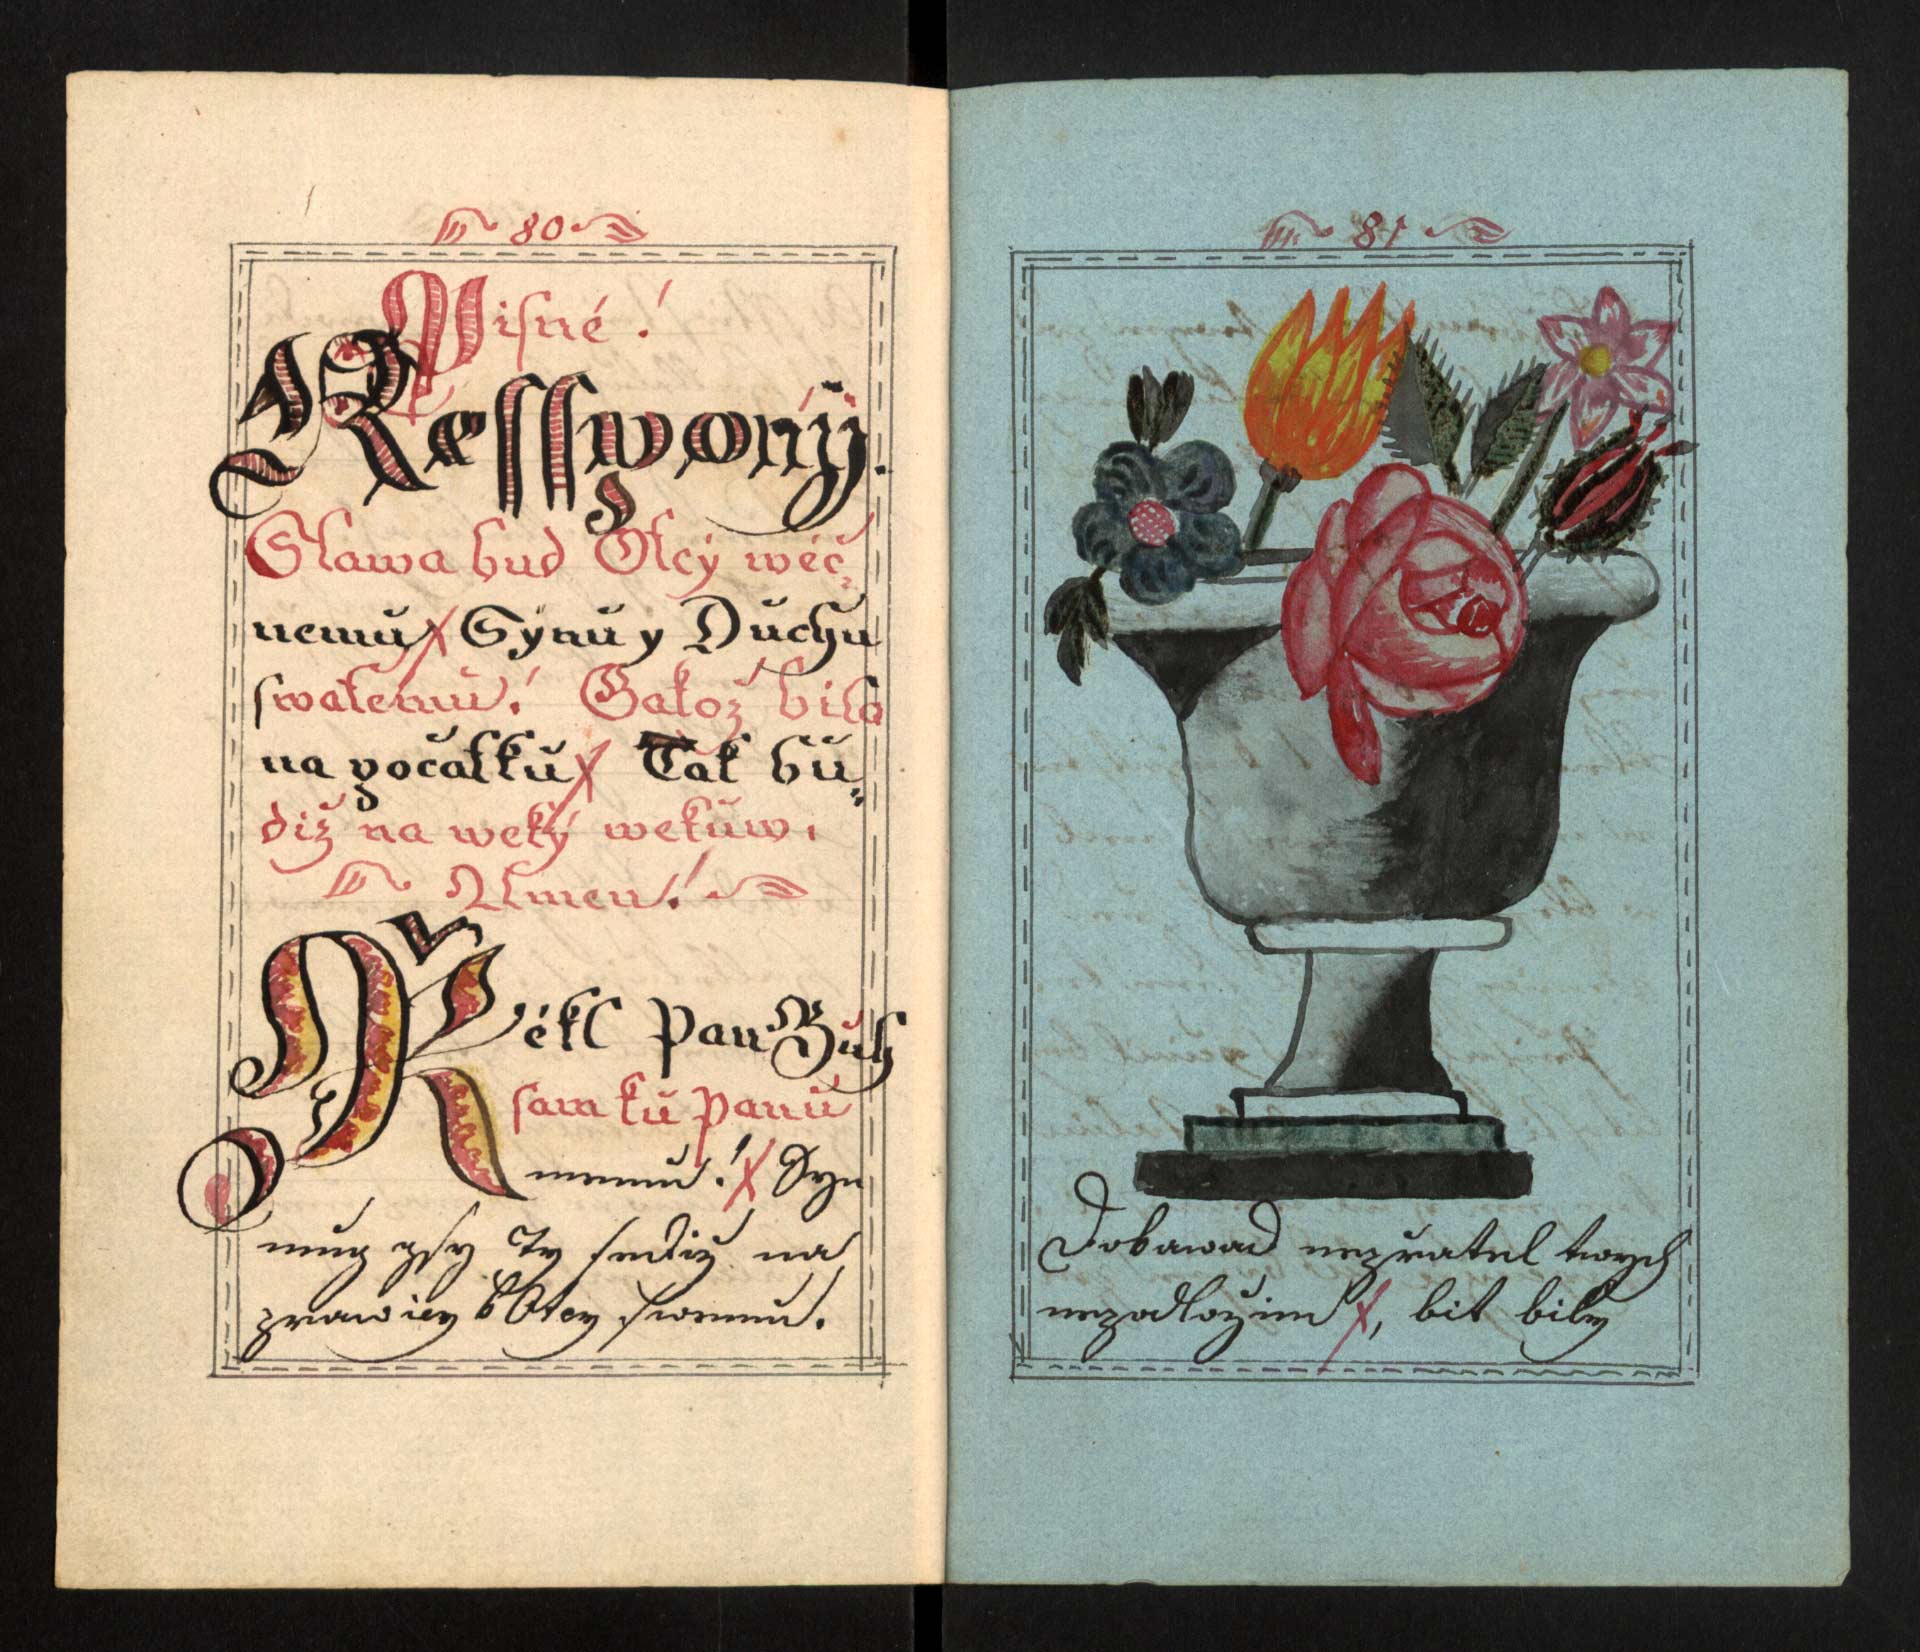 80
Pisné!
Nessponý.
Slawa bud Otcý wěč=
nemu X Sýnu y Duchu
swatemu! Gakož bila
na počátku X Tak bu=
diž na weký wekuw.
Amen!
Ŕékl Pan Buh
sam ku panu
memu! X Syn
mug gsy Ty sediž na
prawicy k Otcy swemu.
81
Dokawad nepřatel twych
nepodložim X, bit bily